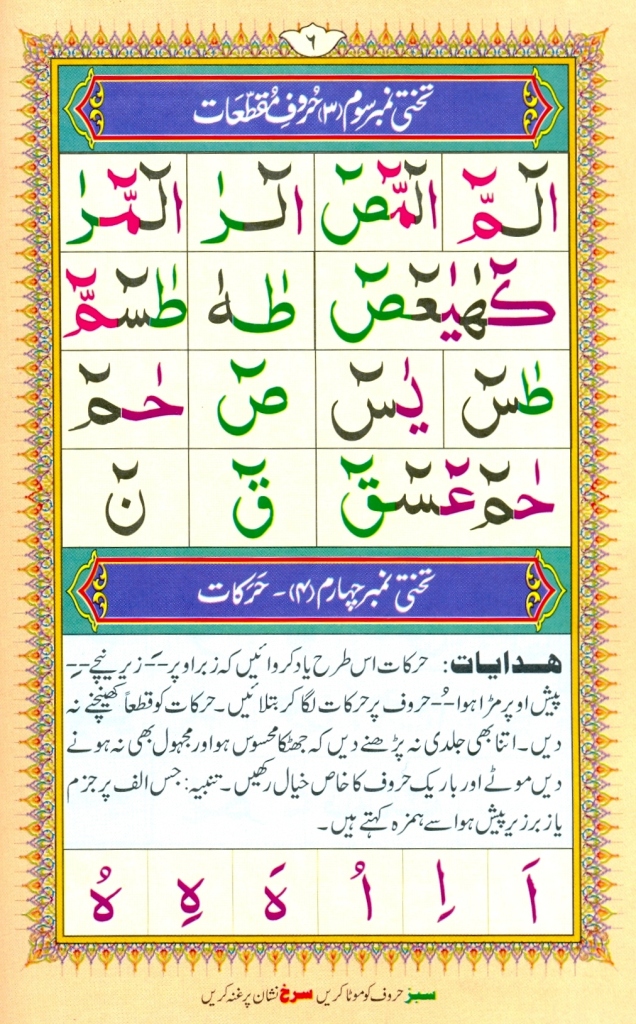 ۶
تختی نمبر سوم (۳) حُروفِ مُقطّعَات
الٓمّٓ الٓمّٓصٓ الٓـرٰ الٓمّٓرٰ
كٓهٰيٰعٓصٓ طٰهٰ طٰسٓمّٓ
طٰسٓ يٰسٓ صٓ حٰمٓ
حٰمٓ عٓسٓقٓ قٓ نٓ
تختی نمبر چہارم (۴) ۔ حَرَکات
ھدایات: حرکات اس طرح یاد کروائیں کہ زبر اوپر -َ- زیر نیچے -ِ-
پیش اوپر مڑا ہوا -ُ- حروف پر حرکات لگا کر بتلائیں۔ حرکات کو قطعاً کھینچنے نہ
دیں۔ اتنا بھی جلدی نہ پڑھنے دیں کہ جھٹکا محسوس ہو اور مجہول بھی نہ ہونے
دیں موٹے اور باریک حروف کا خاص خیال رکھیں۔ تنبیہ: جس الف پر جزم
یا زبر زیر پیش ہو اسے ہمزہ کہتے ہیں۔
اَ اِ اُ هَ هِ هُ
سبز حروف کو موٹا کریں سرخ نشان پر غنہ کریں